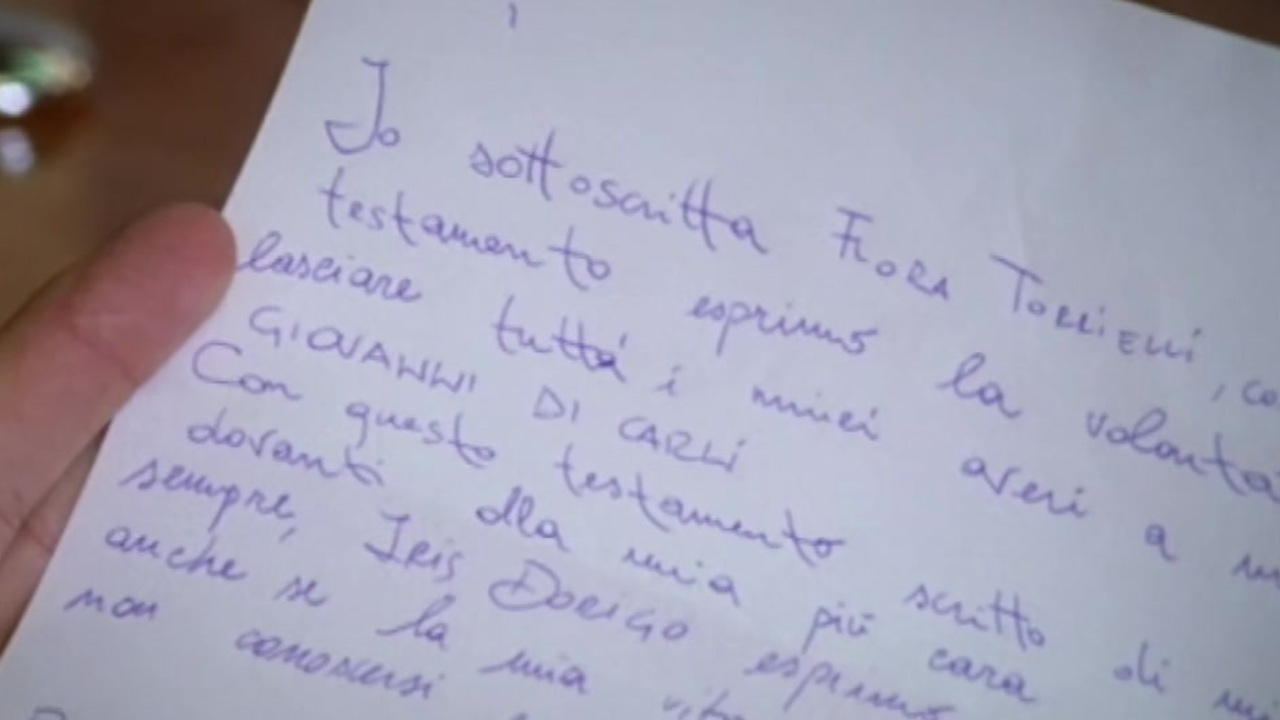 Io sottoscritta FIORA TORRIELLI, co
testamento esprimo la volontà
lasciare tutti i miei averi a
GIOVANNI DI CARLI
Con questo testamento scritto di mi
davanti alla mia più cara
sempre, Iris DORIGO esprimo
anche se la mia
non conoscersi